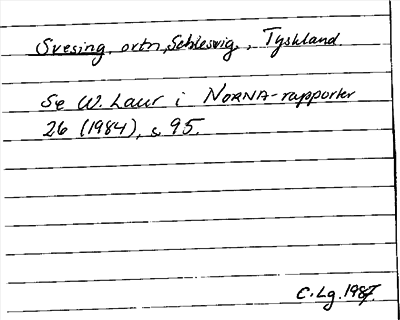 Svesing, ortn, Schleswig, , Tyskland.
Se W. Laur i NORNA-rapporter
26 (1984), s 95.
C. Lg. 1987.